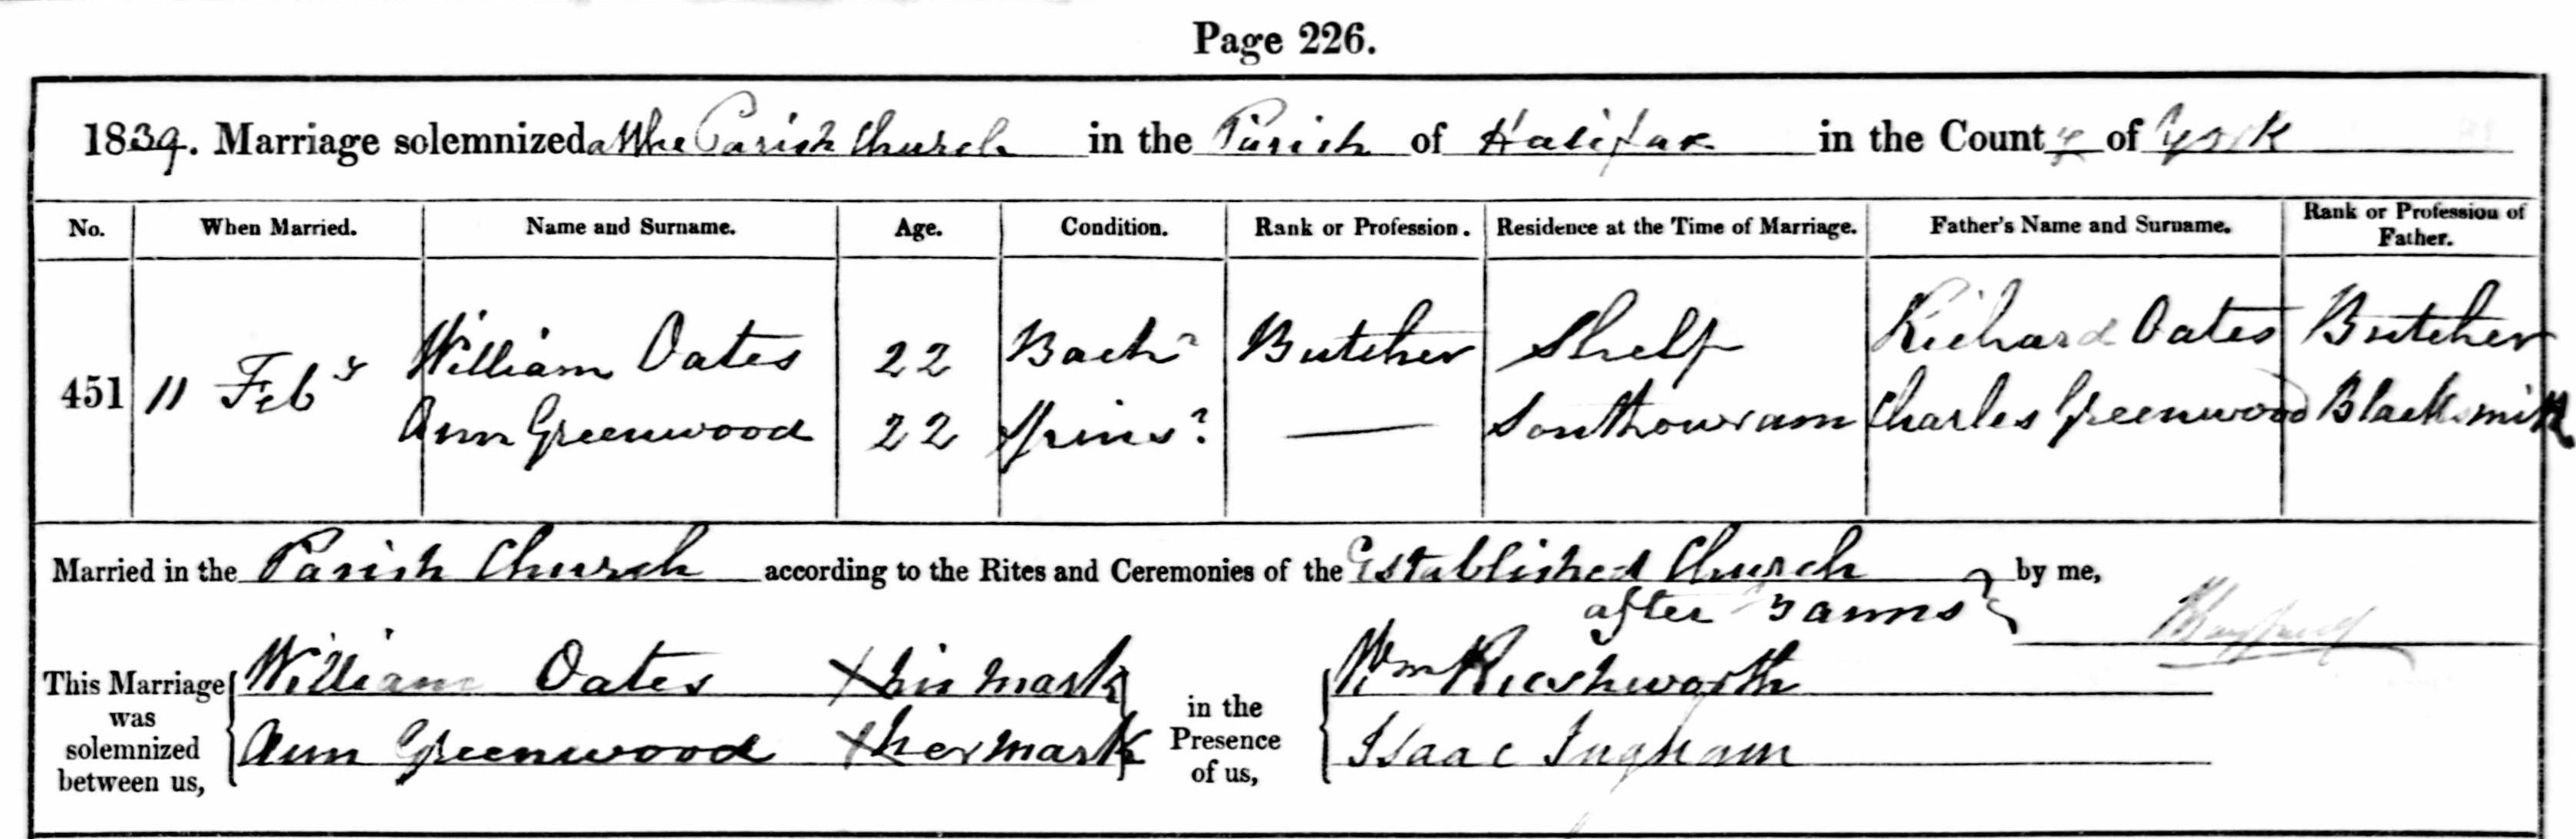 Page 226.
1839. Marriage solemnized at the Parish Church in the Parish of Halifax in the County of York
No. When Married. Name and Surname. Age. Condition. Rank or Profession. Residence at the Time of Marriage. Father's Name and Surname. Rank or Profession of Father.
451 11 Feby William Oates 22 Bachr Butcher Shelf Richard Oates Butcher
Ann Greenwood 22 Spinsr — Southowram Charles Greenwood Blacksmith
Married in the Parish Church according to the Rites and Ceremonies of the Established Church by me,
after Banns
This Marriage was solemnized between us, William Oates X his mark in the Presence of us, Wm Rushworth
Ann Greenwood X her mark Isaac Ingham